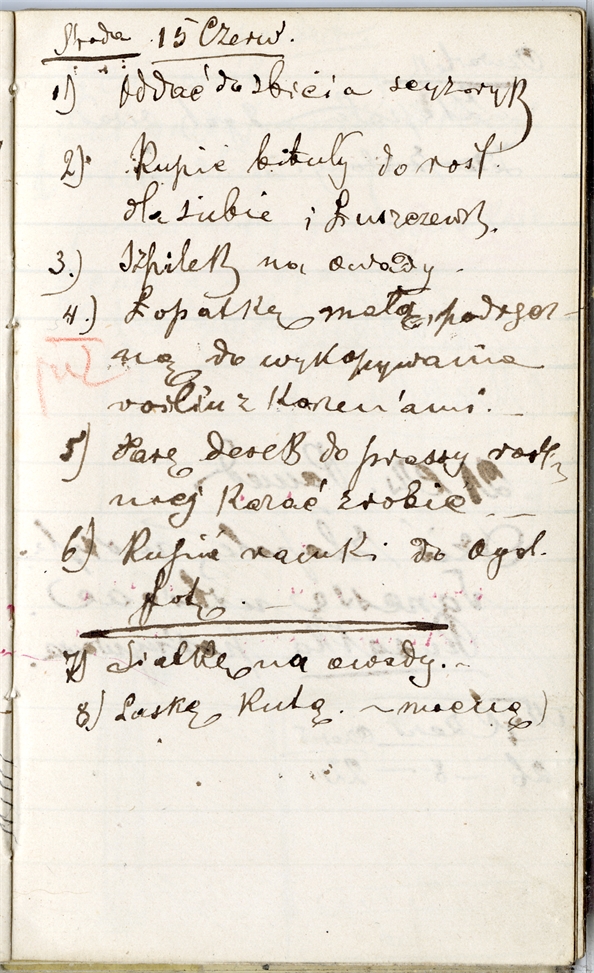 Środa 15 Czerw.
1) Oddać do zbicia scyzoryk
2) Kupić bibuły do rośl.
dla siebie i Łuszczewsk.
3.) Szpilek na owady.
4.) Łopatkę małą, podręcz-
ną do wykopywania
już
roślin z korzeniami.
5) Parę desek do prassy rośl-
nnej kazać zrobić
6) Kupić do
fot.
7) Siatkę na owady.
8) Laskę kutą. ~ mocną)